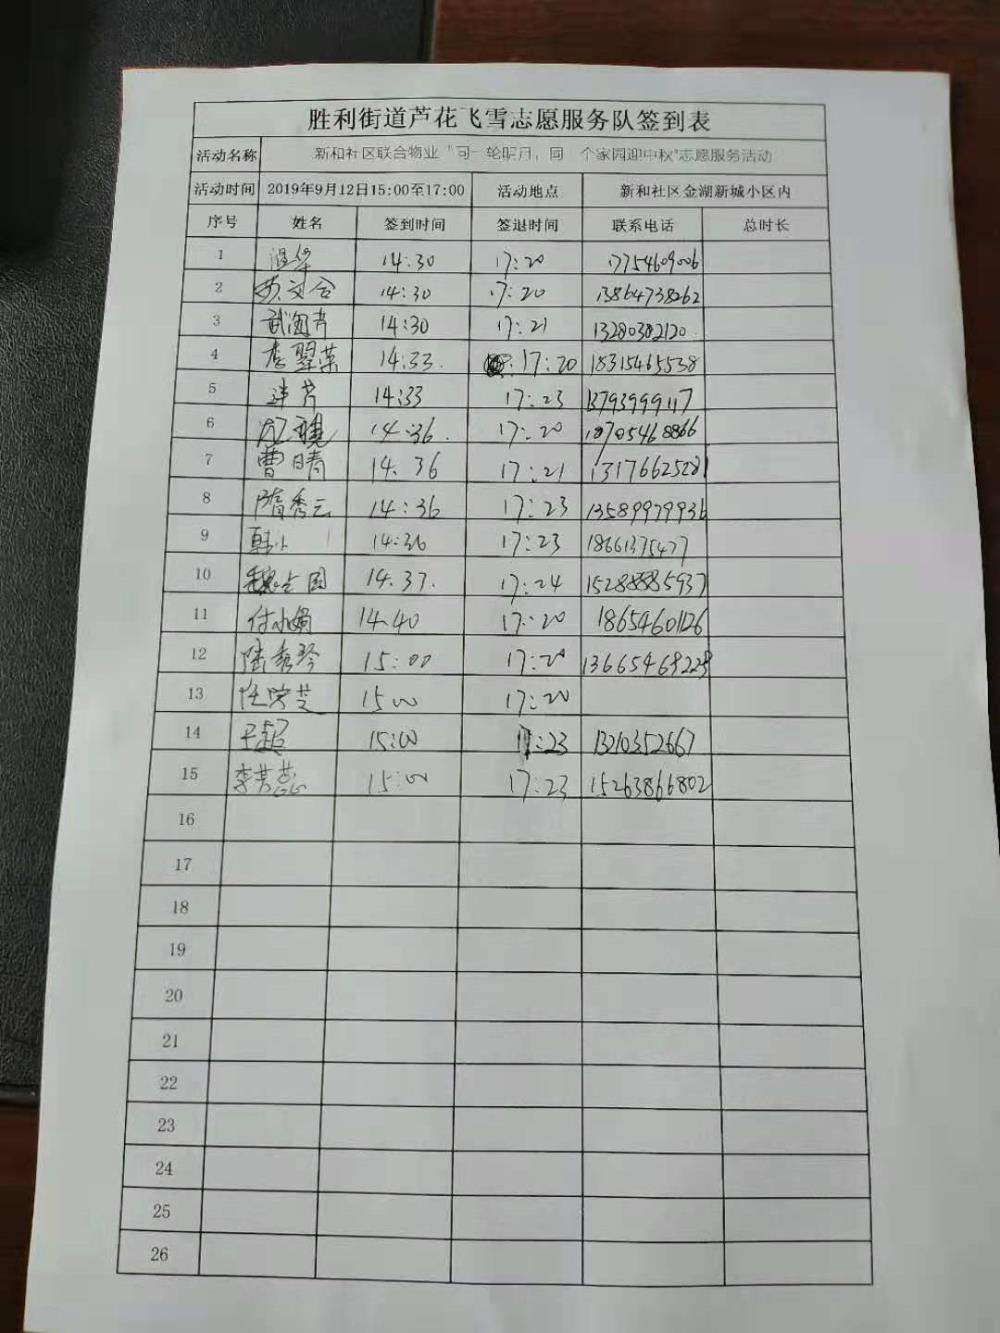 胜利街道芦花飞雪志愿服务队签到表
活动名称 新和社区联合物业"同一轮明月，同一个家园迎中秋"志愿服务活动
活动时间 2019年9月12日15:00至17:00 活动地点 新和社区金湖新城小区内
序号 姓名 签到时间 签退时间 联系电话 总时长
1 14:30 17:20 17754609006
2 14:30 17:20 13864738262
3 14:30 17:21 13280382120
4 李翠荣 14:33 17:20 18315465538
5 14:33 17:23 13793999117
6 14:36 17:20
7 曹晴 14:36 17:21 13176625281
8 隋秀云 14:36 17:23 13589979936
9 14:36 17:23 18661375477
10 魏占国 14:37 17:24 15288885937
11 付小娟 14:40 17:20 18654601126
12 陆秀琴 15:00 17:20 13665468228
13 15:00 17:20
14 王超 15:00 17:23 13210352667
15 李芳蕊 15:00 17:23 15263866802
16
17
18
19
20
21
22
23
24
25
26